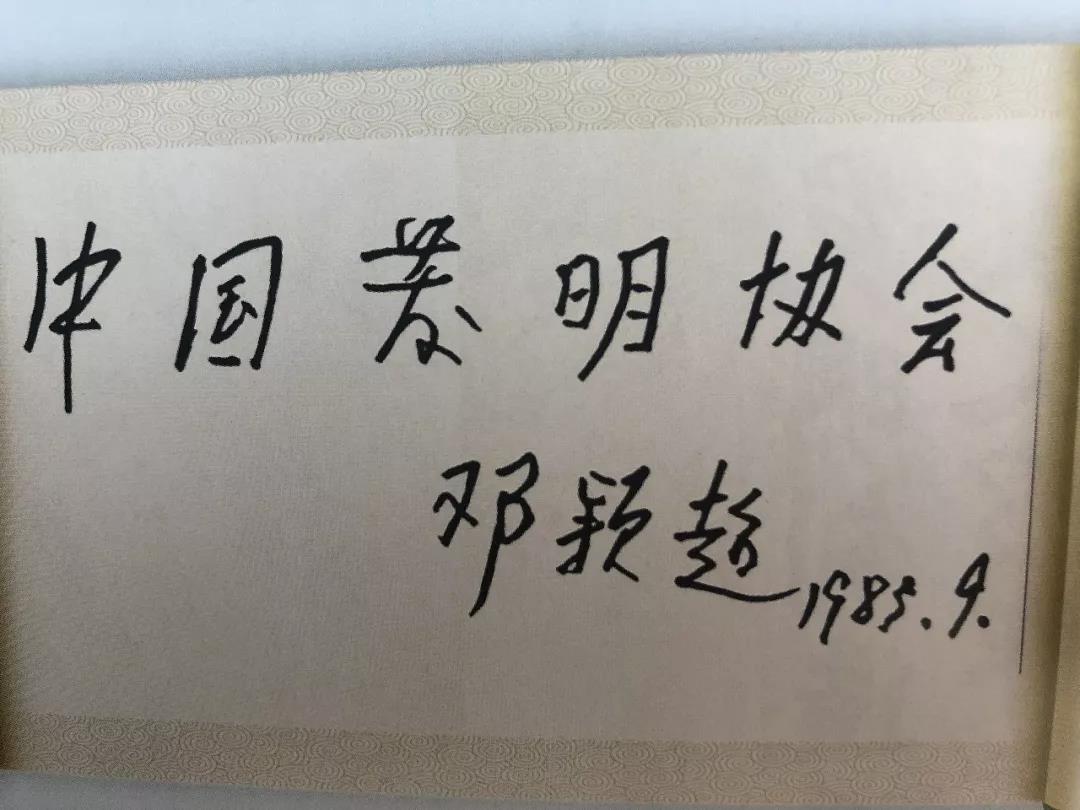 中国发明协会
邓颖超 1985.9.